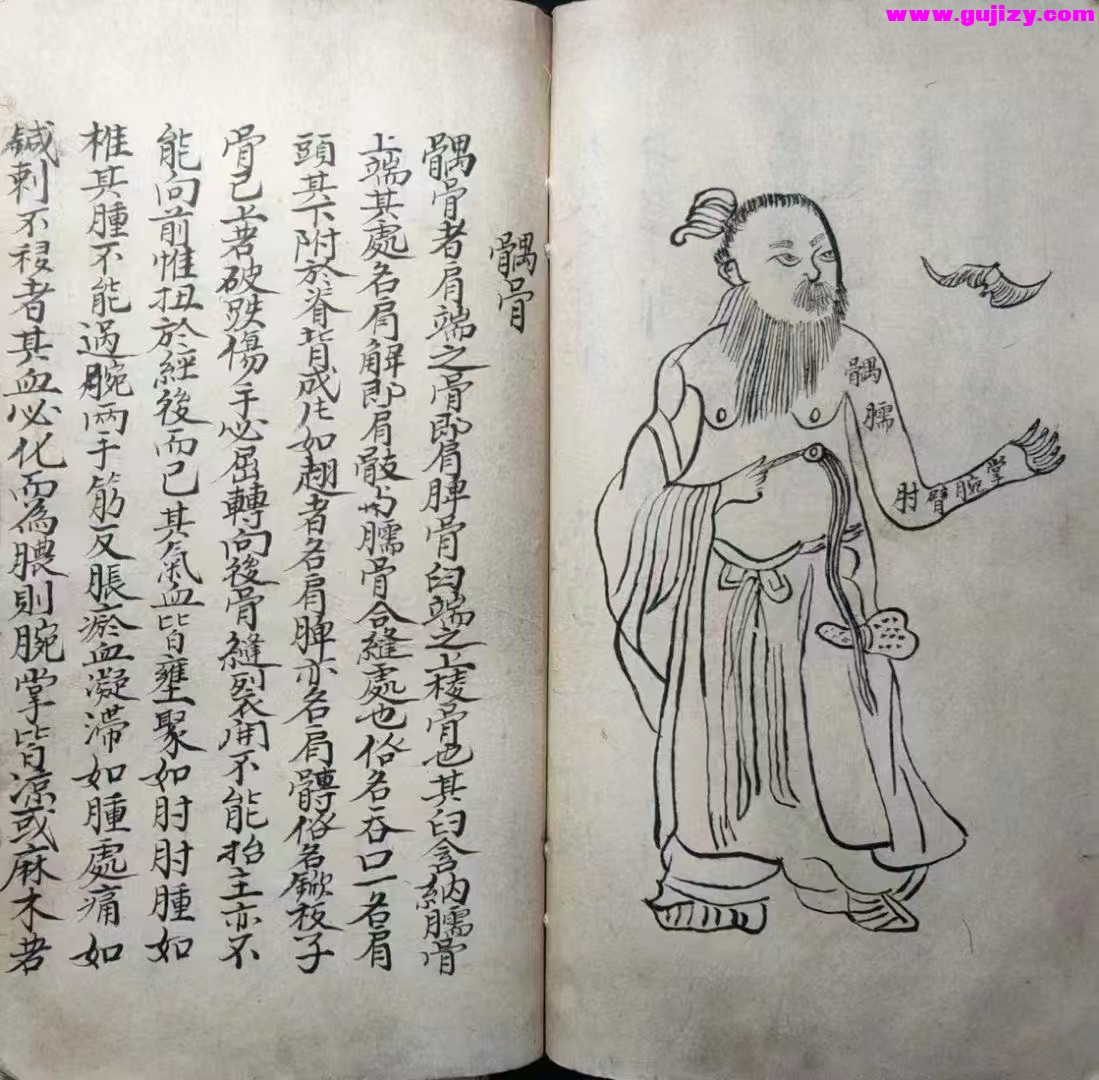 www.gujizy.com
髃骨
髃骨者肩端之骨即肩脾骨臼端之上棱骨也其臼含納臑骨
上端其處名肩解即肩骰与臑骨合縫處也俗名吞口一名肩
頭其下附於脊背成片如翅者名肩脾亦名肩髆俗名鍁板子
骨已上若破跌傷手必屈轉向後骨縫裂開不能抬主亦不
能向前惟扭於經後而已其氣血皆壅聚如肘肘腫如
椎其腫不能過腕兩手筋反脹瘀血凝滯如腫處痛如
鍼刺不移者其血必化而為膿則腕掌皆凉或麻木若
髃
臑
肘
臂
腕
掌